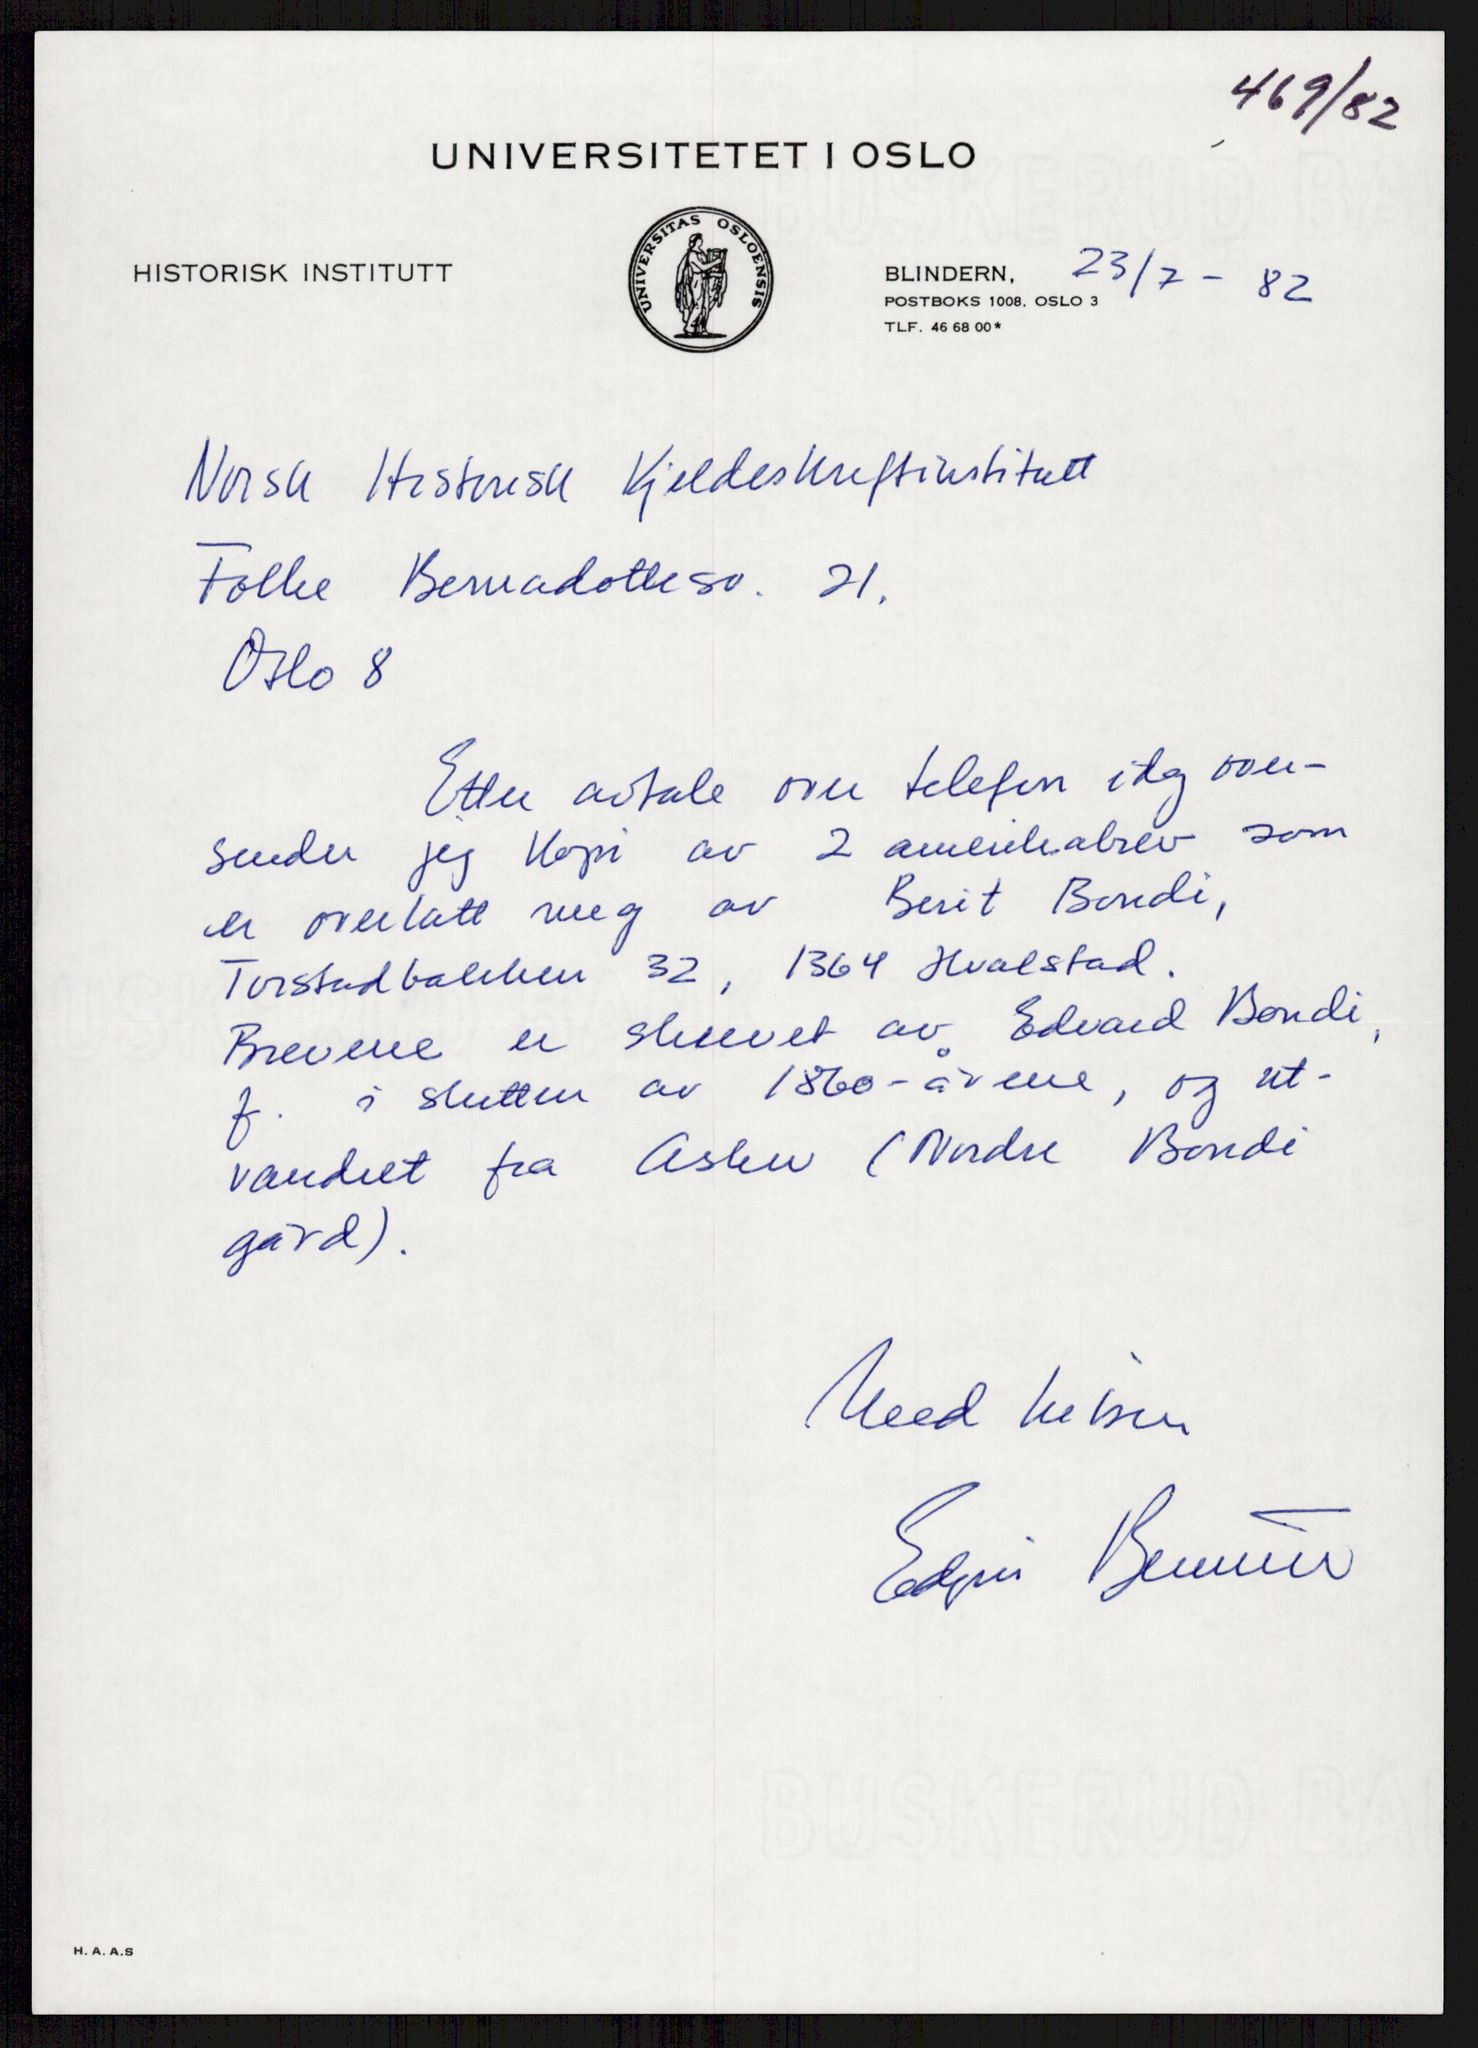 469/82
UNIVERSITETET I OSLO
UNIVERSITAS OSLOENSIS
HISTORISK INSTITUTT
BLINDERN, 23/7 - 82
POSTBOKS 1008. OSLO 3
TLF. 46 68 00*
Norsk Historisk Kjeldeskriftinstitutt
Folke Bernadottesv. 21.
Oslo 8
Etter avtale over telefon idag over-
sender jeg kopi av 2 amerikabrev som
er overlatt meg av Berit Bondi,
Torstadbakken 32, 1364 Hvalstad.
Brevene er skrevet av Edvard Bondi,
f. i slutten av 1860-årene, og ut-
vandret fra Asker (Nordre Bondi
gård).
Med hilsen
BUSKERUD BA
H. A. A. S